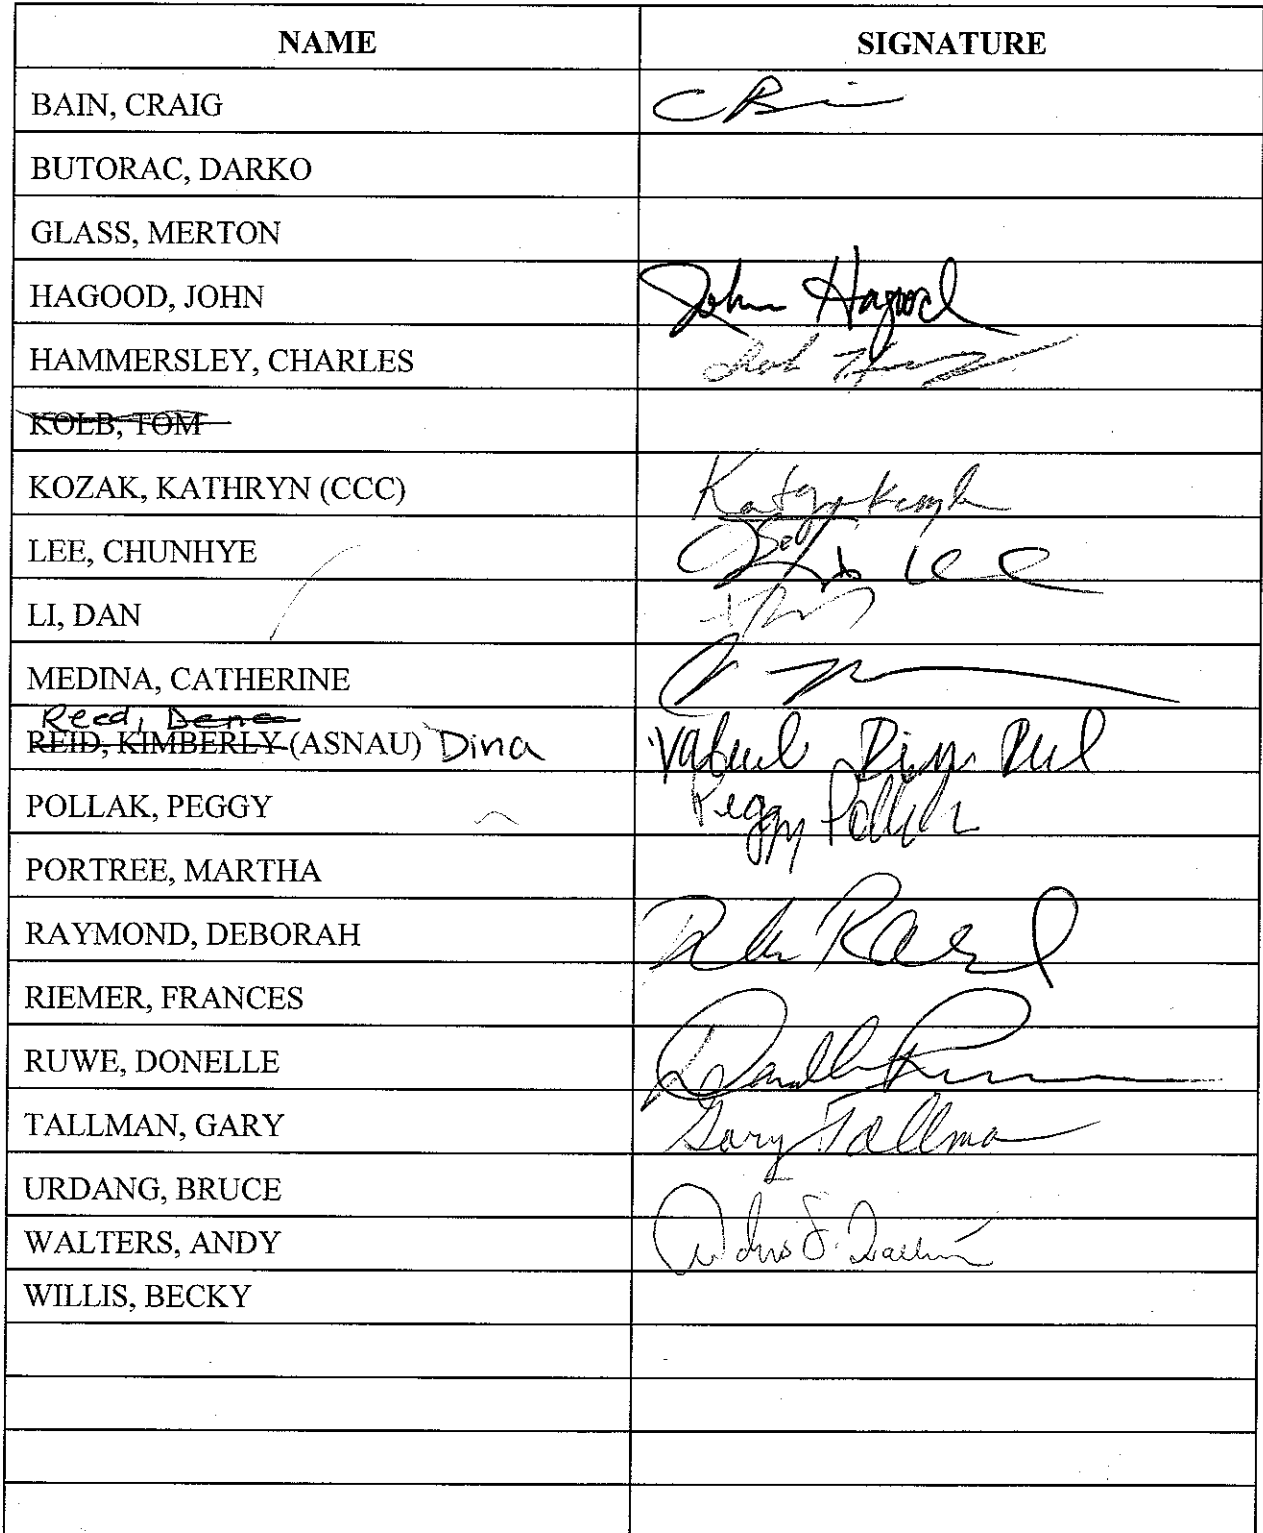 NAME SIGNATURE
BAIN, CRAIG C B
BUTORAC, DARKO
GLASS, MERTON
HAGOOD, JOHN John Hagood
HAMMERSLEY, CHARLES
KOLB, TOM
KOZAK, KATHRYN (CCC)
LEE, CHUNHYE Lee
LI, DAN
MEDINA, CATHERINE
Reed, Denee
REID, KIMBERLY (ASNAU) Dina
POLLAK, PEGGY Peggy Pollak
PORTREE, MARTHA
RAYMOND, DEBORAH
RIEMER, FRANCES
RUWE, DONELLE
TALLMAN, GARY Gary Tallman
URDANG, BRUCE
WALTERS, ANDY
WILLIS, BECKY